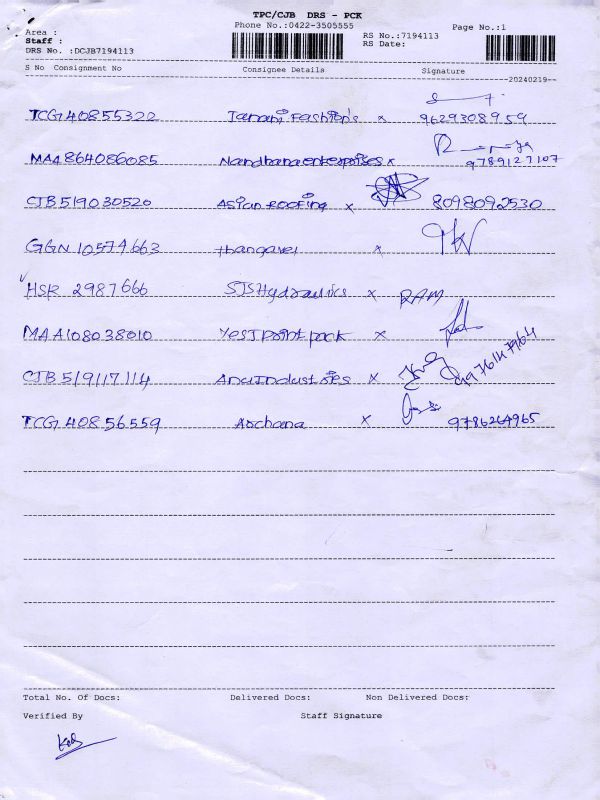 TPC/CJB DRS - PCK
Phone No.:0422-3505555
Page No.:1
Area :
Staff :
DRS No. :DCJB7194113
RS No.:7194113
RS Date:
S No Consignment No Consignee Details Signature
20240219
TCG140855322 Janani Fashion's x 9629308959
MAA864086085 Nandhana enterprises x 9789127107
CJB519030520 Asian roofing x 8098092530
GGN 10574663 thangavel x
HSR 2987666 SJS Hydraulics x RAM
MAA108038010 Yes I point pack x
CJB519117114 Anu Industries x
TCG140856559 Archana x 9786264965
Total No. Of Docs: Delivered Docs: Non Delivered Docs:
Verified By Staff Signature